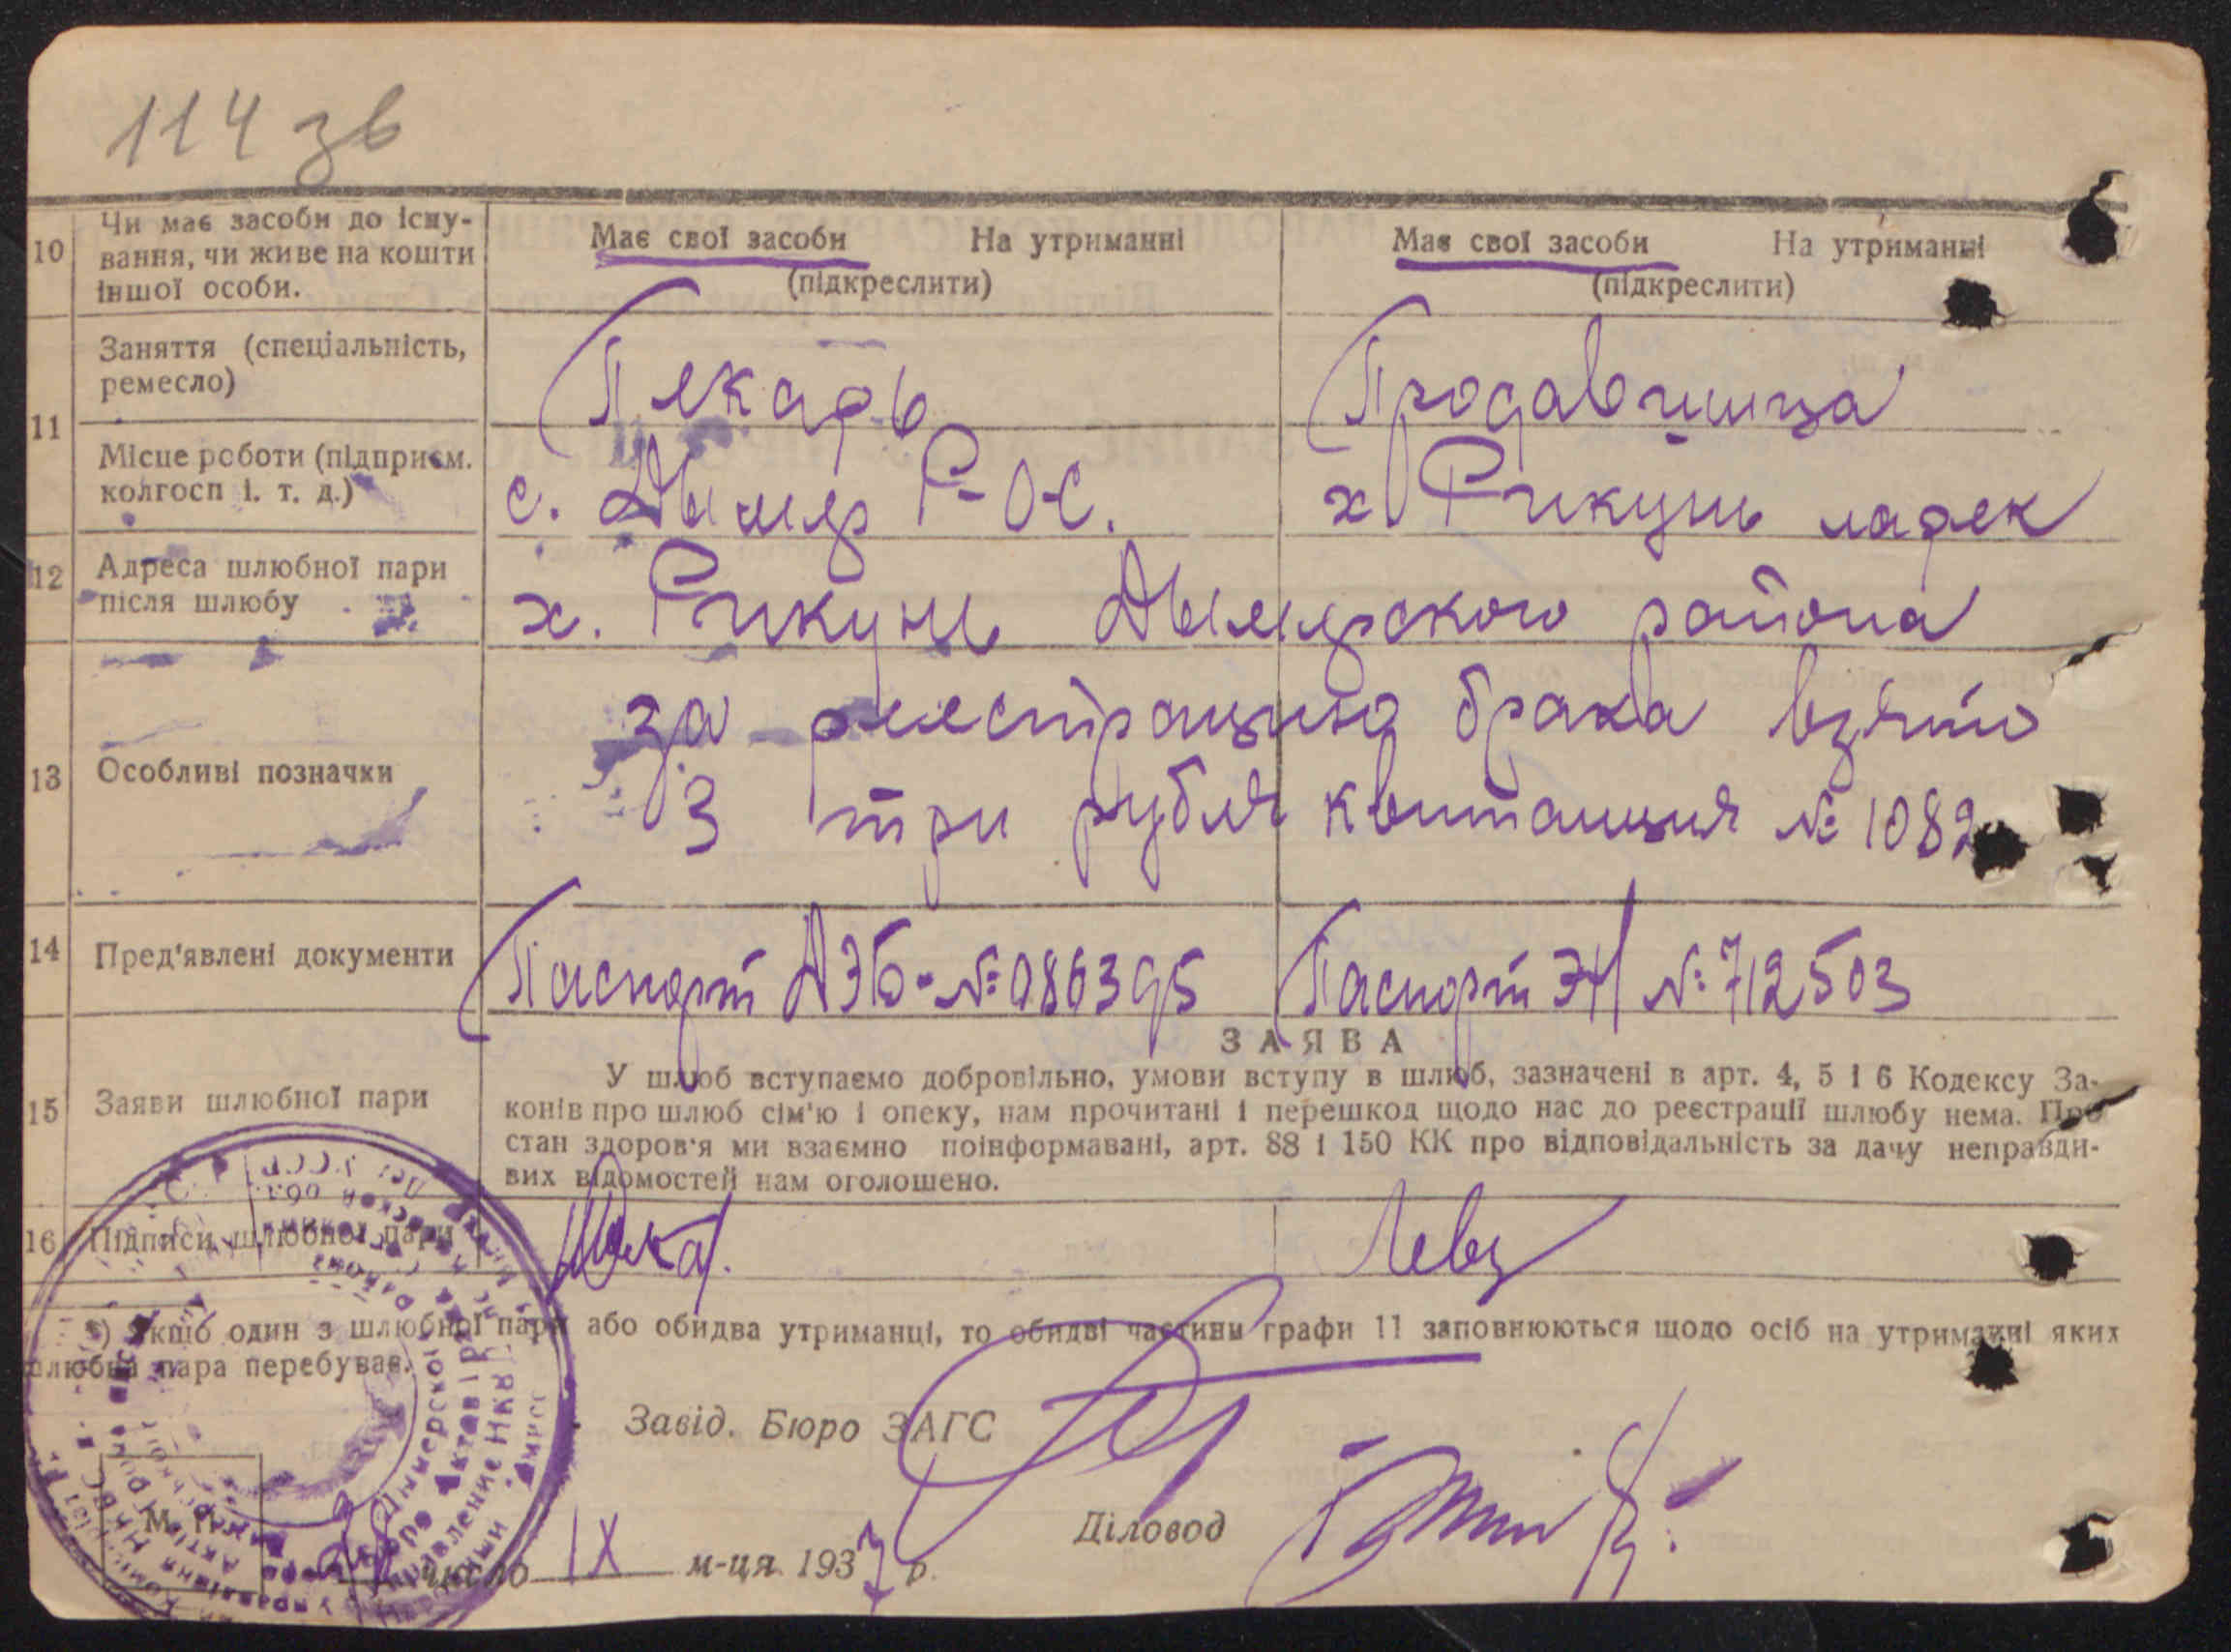 114 зв
10 Чи має засоби до існу-
вання, чи живе на кошти
іншої особи.
Має свої засоби На утриманні
(підкреслити)
Має свої засоби На утриманні
(підкреслити)
11 Заняття (спеціальність,
ремесло)
Пекарь
Продавщица
Місце роботи (підприєм.
колгосп і. т. д.)
с. Дымер Р-О-С.
х Рикунь ларек
12 Адреса шлюбної пари
після шлюбу
х. Рикунь Дымерского района
13 Особливі позначки
за реестрацыю брака взято
3 три рубля квитанция № 1082
14 Пред'явлені документи
Паспорт АЭБ-№ 086395
Паспорт ЭН № 712503
15 Заяви шлюбної пари
ЗАЯВА
У шлюб вступаємо добровільно, умови вступу в шлюб, зазначені в арт. 4, 5 і 6 Кодексу За-
конів про шлюб сім'ю і опеку, нам прочитані і перешкод щодо нас до реєстрації шлюбу нема. Про
стан здоров'я ми взаємно поінформавані, арт. 88 і 150 КК про відповідальність за дачу неправди-
вих відомостей нам оголошено.
16 Підписи шлюбної пари
*) Якщо один з шлюбної пари або обидва утриманці, то обидві частини графи 11 заповнюються щодо осіб на утриманні яких
шлюбна пара перебуває.
Завід. Бюро ЗАГС
Діловод
М. П.
число IX м-ця 1937 р.